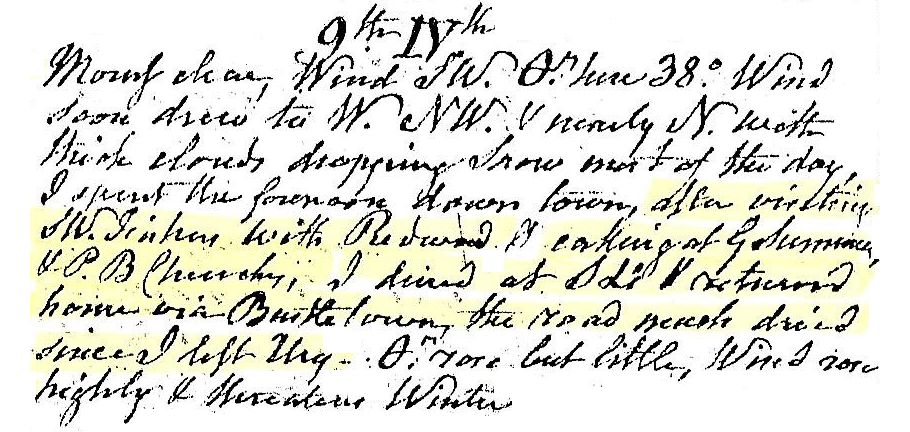 9th IVth
clear, Wind SW. 38° Wind
soon drew to W. NW. & nearly N. with
thick clouds dropping snow most of the day,
I spent the forenoon down town, after visiting
SW. with & calling at G
& P. B I dined at & returned
home via town, the road much dried
since I left rose but little, Wind rose
highly & threatens Winter